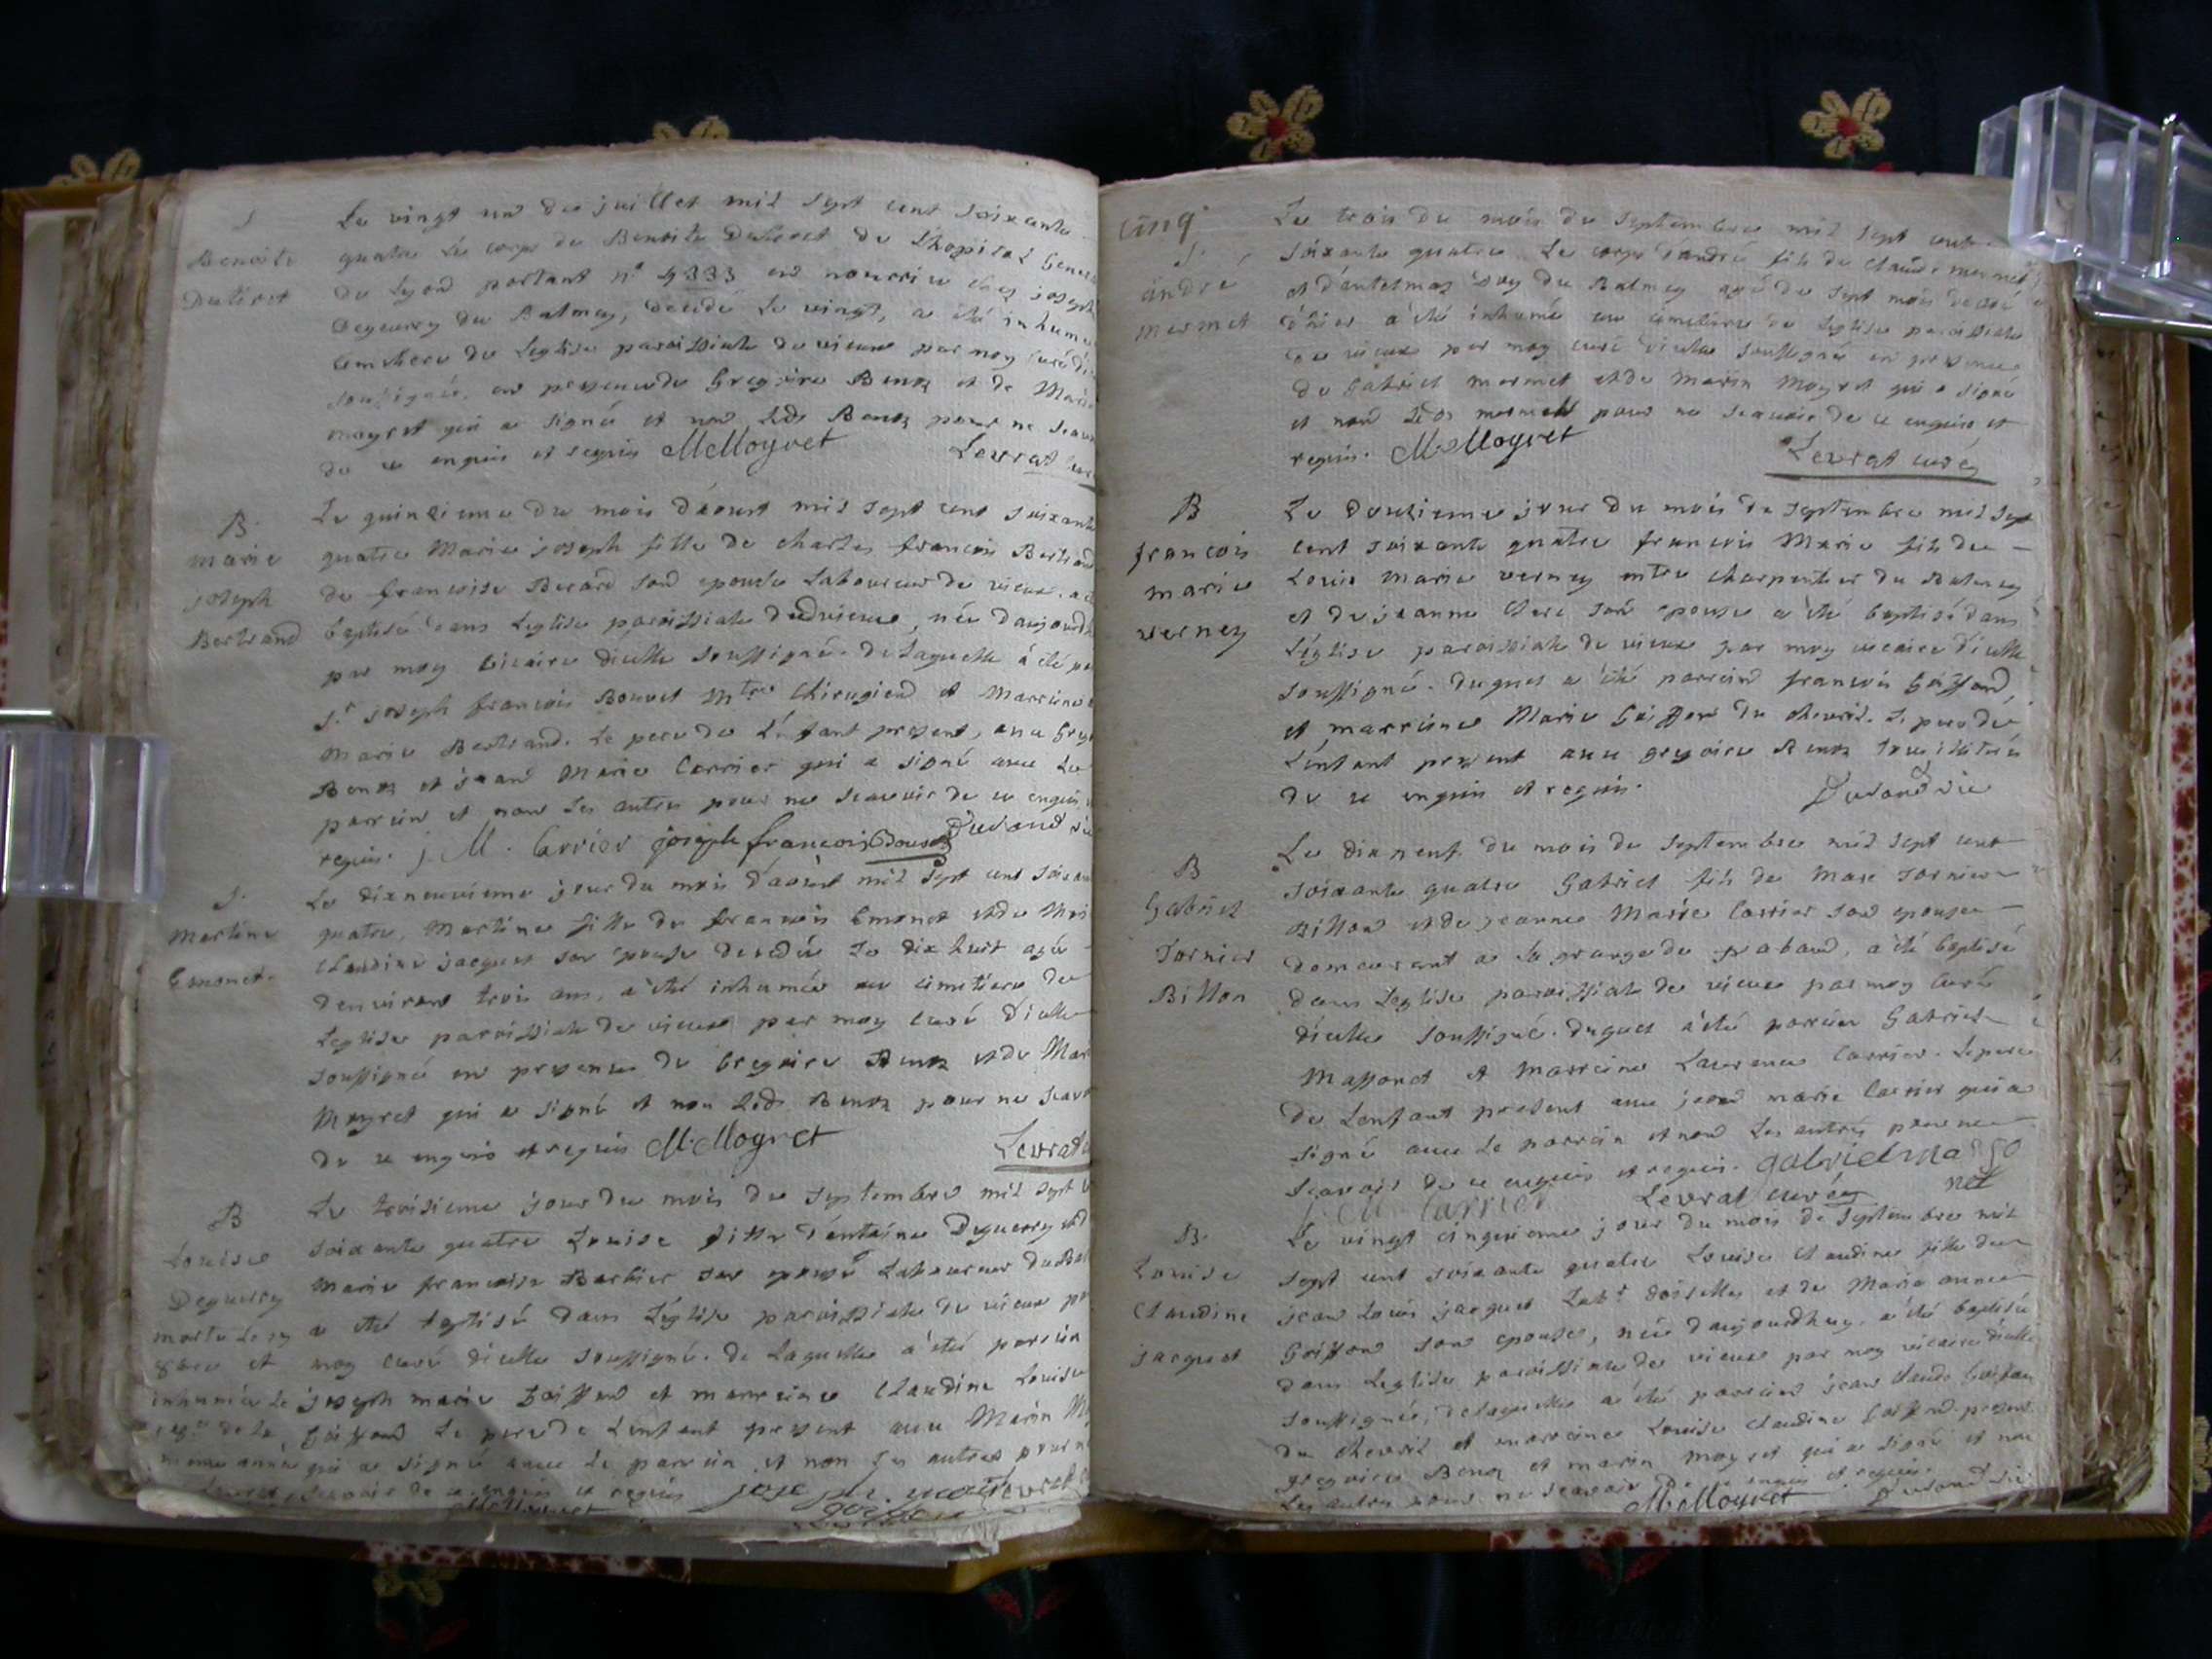 S
Benoite
Le vingt un de juillet mil sept cent soixante
quatre Le corps de Benoite de Lhopital General
de Lyon portant n° 4333 en nourrice chez joseph
Deguerry du Balmey, decedé Le vingt, a été inhumé
cimetiere de Leglise paroissiale de vieux par moy curé
soussigné, en presence de Gregoire Benoz et de Marin
moyret qui a signé et non Led. Benoz pour ne scavoir
de ce enquis et requis MMoyret Levrat curé
B.
marie
joseph
Bertrand
Le quinzieme du mois d'aoust mil sept cent soixante
quatre Marie joseph fille de charles francois Bertrand
de francoise Berard son epouse Laboureur de vieux. a été
baptisée dans Leglise paroissiale dudvieux, née d'aujourdh
par moy vicaire dicelle soussigné. de Laquelle a été pa
S.r joseph francois Bonnet M.tre Chirugien et Marreine
Marie Bertrand. Le pere de L'enfant present, avec Greg
Benoz et jean Marie Carrier qui a signé avec Le
parrein et non Les autres pour ne scavoir de ce enquis
requis. j. M. Carrier joseph francois Durand vic
S.
Martine
Emonet.
Le dixneuvieme jour du mois d'aoust mil sept cent soixan
quatre, Martine fille de francois Emonet et de
Claudine jacquet son epouse decedée Le dix huit agée
denviron trois ans, a été inhumée au cimetiere de
Leglise paroissiale de vieux par moy curé d'icelle
soussigné en presence de Gregoire Benoz et de Mar
Moyret qui a signé et non Led. Benoz pour ne scavo
de ce enquis et requis M.Moyret Levrat
B
Louise
Deguerry
morte Le
et
inhumée Le
de La
meme année
Le troisieme jour du mois de septembre mil sept
soixante quatre Louise fille d'antoine Deguerry et d
Marie francoise Barbier son epouse Laboureur du Bal
a été baptisé dans L'église paroissiale de vieux pa
moy curé dicelle soussigné. de Laquelle a été parrein
joseph marie Goiffon et marreine Claudine Louise
Goiffon Le pere de Lenfant present avec Marin M
qui a signé avec Le parrein et non Les autres pour n
scavoir de ce enquis et requis Levrat
MMoyret
cinq
S.
andré
mermet
Le trois du mois de septembre mil sept cent
soixante quatre Le corps d'andré fils de claude mermet
du Balmey agé de sept mois decedé
d'hier a été inhumé au cimetiere de Leglise paroissiale
de vieux par moy curé dicelle soussigné en presence
de Gabriel mermet et de marin Moyret qui a signé
et non Led. mermet pour ne scavoir de ce enquis et
requis. M.Moyret Levrat curé
B
francois
marie
verney
Le douzieme jour du mois de septembre mil sept
cent soixante quatre francois Marie fils de
Louis Marie verney m.tre charpentier du Balmey
et de jeanne son epouse a été baptisé dans
L'église paroissiale de vieux par moy vicaire d'icelle
soussigné. duquel a été parrein francois Goiffond,
et marreine Marie Goiffon du chevril. Le pere de
L'enfant present avec gregoire Benoz tous illiterés
de ce enquis et requis. Durand vic
B
Gabriel
Tornier
Billon
Le dixneuf du mois de septembre mil sept cent
soixante quatre Gabriel fils de Marc Tornier
Billon et de jeanne Marie Carrier son epouse
demeurant a La grange de, a été baptisé
dans Leglise paroissiale de vieux par moy curé
dicelle soussigné. duquel a été parrein Gabriel
Massonet et Marreine Laurence Carrier. Le pere
de Lenfant present avec jean marie Carrier qui a
signé avec Le parrein et non Les autres pour ne
scavoir de ce enquis et requis. gabriel masso
net
j. M. Carrier Levrat curé
B.
Louise
Claudine
jacquet
Le vingt cinquieme jour du mois de septembre mil
sept cent soixante quatre Louise Claudine fille de
jean Louis jacquet Lab.r doiselle, et de Marie anne
Goiffon son epouse, née d'aujourdhuy, a été baptisée
dans Leglise paroissiale de vieux par moy vicaire dicelle
soussigné, de Laquelle a été parrein jean claude Goiffon
du chevril et marreine Louise Claudine Goiffond. present
gregoire Benoz et marin moyret qui a signé et non
Les autres pour ne scavoir de ce enquis et requis.
M.Moyret Durand vic